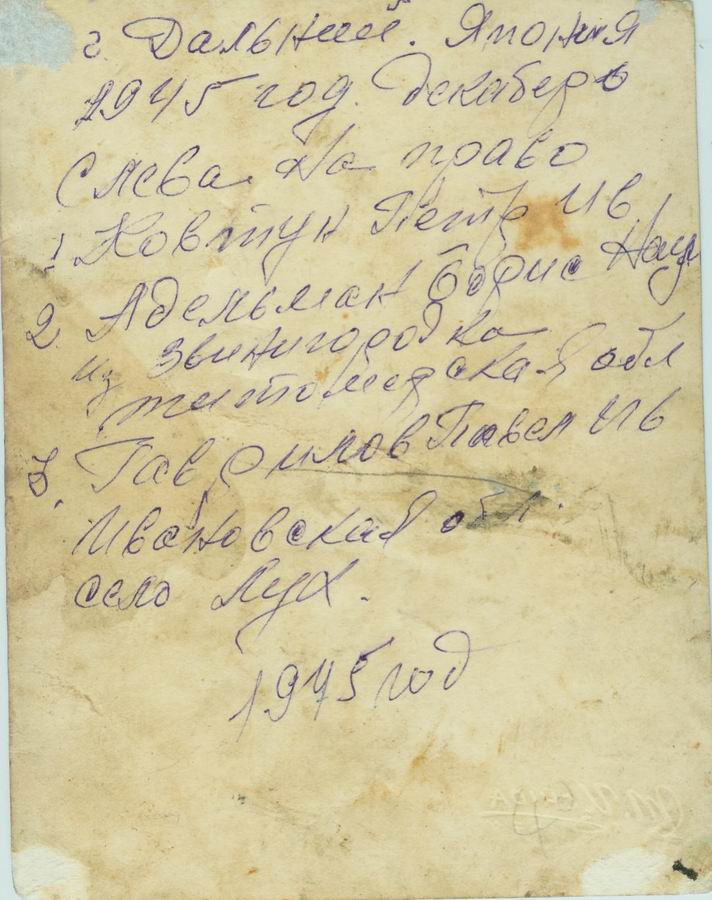 г. Дальний. Япония
1945 год. Декаберь
слева на право
1. Ковтун Петр Ив
2. Адельман Борис Наум
из Звенигородка
житомерская обл
3. Гаврилов Павел Ив
Ивановская обл.
село Лух.
1945 год